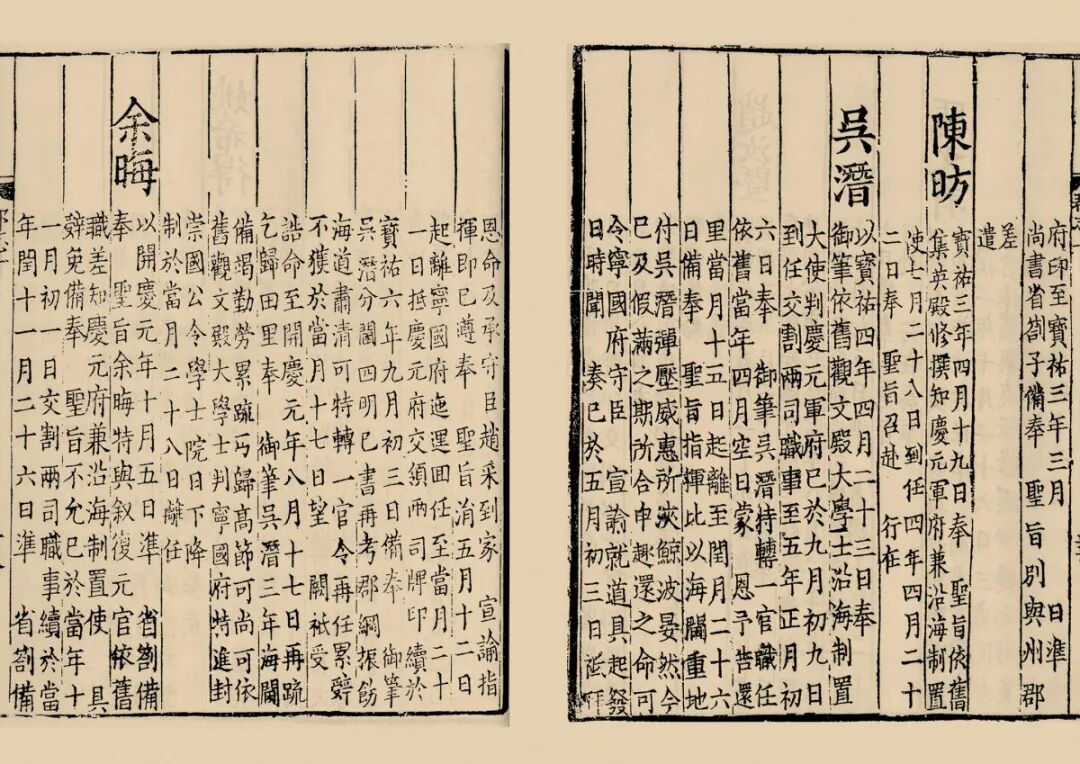 府印至寶祐三年三月 日準
尚書省劄子備奉 聖旨別與州郡
差
遣
陳昉
寶祐三年四月十九日奉 聖旨依舊
集英殿修撰知慶元軍府兼沿海制置
使七月二十八日到任四年四月二十
二日奉 聖旨召赴 行在
吳潛
以寶祐四年四月二十三日奉
御筆依舊觀文殿大學士沿海制置
大使判慶元軍府已於九月初九日
到任交割兩司職事至五年正月初
六日奉 御筆吳潛特轉一官職任
依舊當年四月空日蒙 恩予告還
里當月十五日起離至閏月二十六
日備奉 聖旨指揮比以海閫重地
付吳潛彈壓威惠所浹鯨波晏然今
已及假滿之期所合申趣還之命可
令寧國府守臣 宣諭就道具起發
日時聞奏已於五月初三日祗拜
恩命及承守臣趙采到家 宣諭指
揮即已遵奉 聖旨消五月十二日
起離寧國府迤邐回任至當月二十
一日抵慶元府交領兩司牌印續於
寶祐六年九月初三日備奉 御筆
吳潛分閫四明已書再考郡綱振飭
海道肅清可特轉一官令再任累辭
不獲於當月十七日望 闕祗受
誥命至開慶元年八月十七日再疏
乞歸田里奉 御筆吳潛三年海閫
備竭勤勞累疏丐歸高節可尚可依
舊觀文殿大學士判寧國府特進封
崇國公令學士院日下降
制於當月二十八日離任
余晦
以開慶元年十月五日準 省劄備
奉 聖旨余晦特與敘復元官依舊
職差知慶元府兼沿海制置使 具
辭免備奉 聖旨不允已於當年十
一月初一日交割兩司職事續於當
年閏十一月二十六日準 省劄備